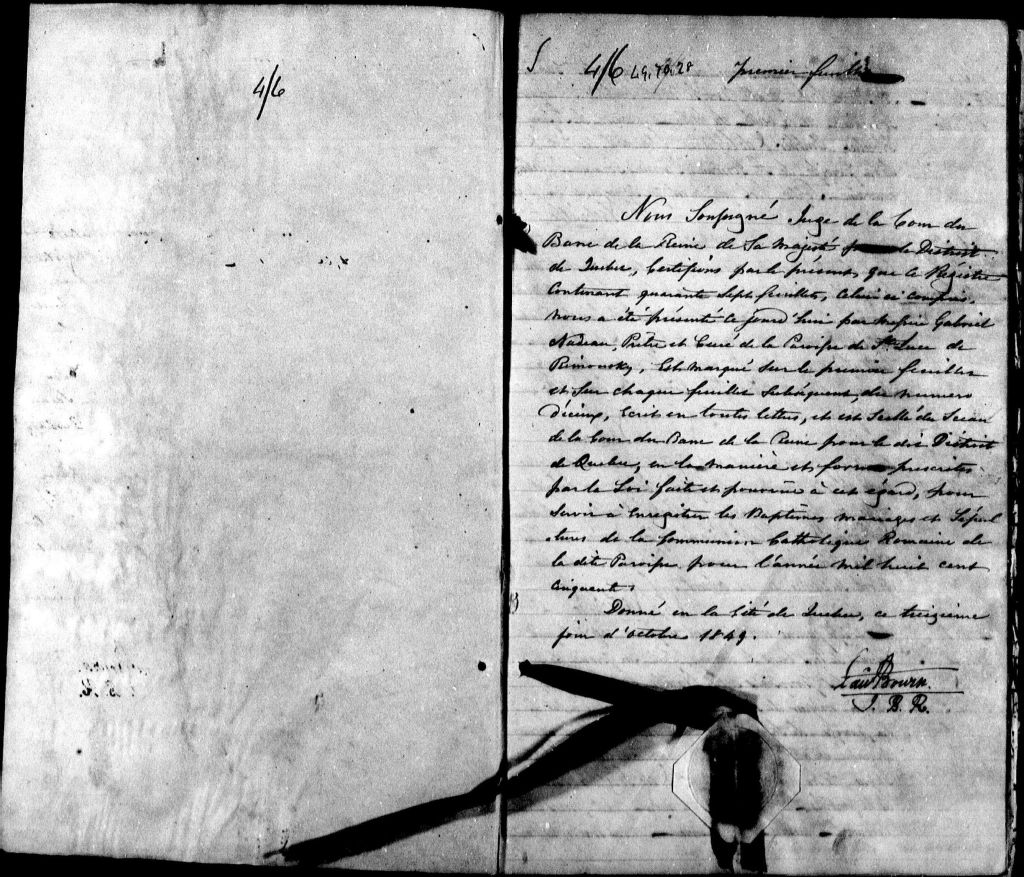 4/6
4/6 49.70.28 Premier feuillet
Nous Soussigné Juge de la Cour du
Banc de la Reine de Sa Majesté pour le District
de Quebec, Certifions par le présent, que ce Régistre
Contenant quarante Sept feuillets, Celui ci compris,
nous a été présenté ce jourd'hui par Messire Gabriel
Nadeau, Prêtre et Curé de la Paroisse de Ste Luce de
Rimousky, Est marqué Sur le premier feuillet
et Sur chaque feuillet Subséquent, du numero
d'iceux, Ecrit en toutes lettres, et est Scellé du Sceau
de la Cour du Banc de la Reine pour le dit District
de Quebec, en la maniere et forme prescrites
par la Loi faite et pourvue à cet égard, pour
Servir à Enregistrer les Baptêmes mariages et Sépul
tures de la Communion Catholique Romaine de
la dite Paroisse pour l'année mil huit cent
Cinquante.
Donné en la Cité de Quebec, ce treizieme
jour d'octobre 1849.
J. B. R.